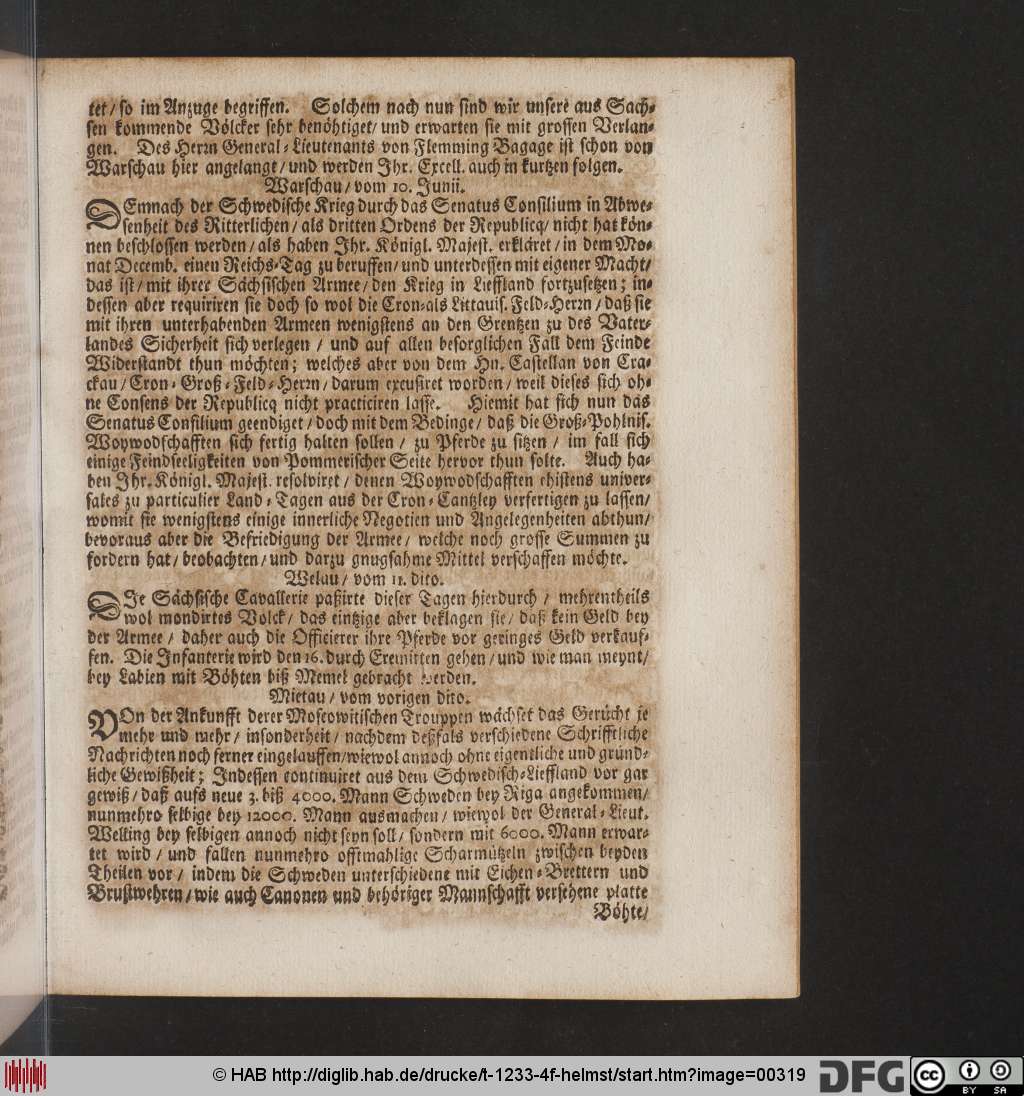 tet/ so im Anzuge begriffen. Solchem nach nun sind wir unsere aus Sach-
sen kommende Völcker sehr benöhtiget/ und erwarten sie mit grossen Verlan-
gen. Des Herrn General-Lieutenants von Flemming Bagage ist schon von
Warschau hier angelangt/ und werden Ihr. Excell. auch in kurtzen folgen.
Warschau/ vom 10. Junii.
DEmnach der Schwedische Krieg durch das Senatus Consilium in Abwe-
senheit des Ritterlichen/ als dritten Ordens der Republicq/ nicht hat kön-
nen beschlossen werden/ als haben Ihr. Königl. Majest. erkläret/ in dem Mo-
nat Decemb. einen Reichs-Tag zu beruffen/ und unterdessen mit eigener Macht/
das ist/ mit ihrer Sächsischen Armee/ den Krieg in Lieffland fortzusetzen; in-
dessen aber requiriren sie doch so wol die Cron-als Littauis. Feld-Herrn/ daß sie
mit ihren unterhabenden Armeen wenigstens an den Grentzen zu des Vater-
landes Sicherheit sich verlegen / und auf allen besorglichen Fall dem Feinde
Widerstandt thun möchten; welches aber von dem Hn. Castellan von Cra-
ckau/ Cron-Groß-Feld-Herrn/ darum excusiret worden/ weil dieses sich oh-
ne Consens der Republicq nicht practiciren lasse. Hiemit hat sich nun das
Senatus Consilium geendiget/ doch mit dem Bedinge/ daß die Groß-Pohlnis.
Woywodschafften sich fertig halten sollen / zu Pferde zu sitzen / im fall sich
einige Feindseeligkeiten von Pommerischer Seite hervor thun solte. Auch ha-
ben Ihr. Königl. Majest. resolviret/ denen Woywodschafften ehistens univer-
sales zu particulier Land-Tagen aus der Cron-Cantzley verfertigen zu lassen/
womit sie wenigstens einige innerliche Negotien und Angelegenheiten abthun/
bevoraus aber die Befriedigung der Armee/ welche noch grosse Summen zu
fordern hat/ beobachten/ und darzu gnugsahme Mittel verschaffen möchte.
Welau/ vom 11. dito.
DIe Sächsische Cavallerie paßirte dieser Tagen hierdurch / mehrentheils
wol mondirtes Volck/ das eintzige aber beklagen sie/ daß kein Geld bey
der Armee/ daher auch die Officierer ihre Pferde vor geringes Geld verkauf-
fen. Die Infanterie wird den 16. durch Eremitten gehen/ und wie man meynt/
bey Labien mit Böhten biß Memel gebracht werden.
Mietau/ vom vorigen dito.
VOn der Ankunfft derer Moscowitischen Trouppen wächset das Gerücht je
mehr und mehr/ insonderheit/ nachdem deßfals verschiedene Schrifftliche
Nachrichten noch ferner eingelauffen/ wiewol annoch ohne eigentliche und gründ-
liche Gewißheit; Indessen continuiret aus dem Schwedisch-Lieffland vor gar
gewiß/ daß aufs neue 3. biß 4000. Mann Schweden bey Riga angekommen/
nunmehro selbige bey 12000. Mann ausmachen/ wiewol der General-Lieut.
Welling bey selbigen annoch nicht seyn soll/ sondern mit 6000. Mann erwar-
tet wird/ und fallen nunmehro offtmahlige Scharmützeln zwischen beyden
Theilen vor/ indem die Schweden unterschiedene mit Eichen-Brettern und
Brustwehren/ wie auch Canonen und behöriger Mannschafft versehene platte
Böhte/
© HAB http://diglib.hab.de/drucke/t-1233-4f-helmst/start.htm?image=00319
DFG
cc BY SA